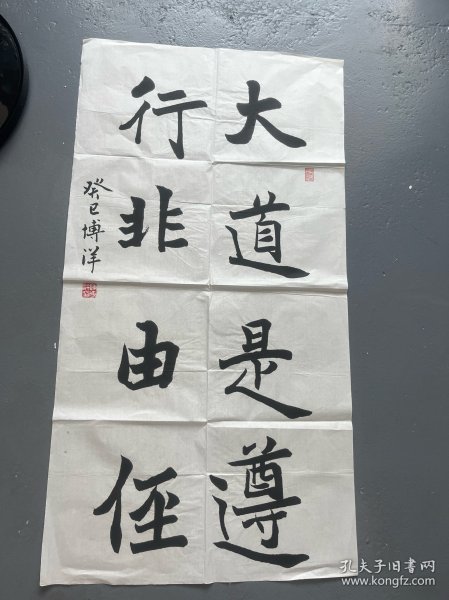 大道是遵
行非由径
癸巳博洋
孔夫子旧书网
www.kongfz.com